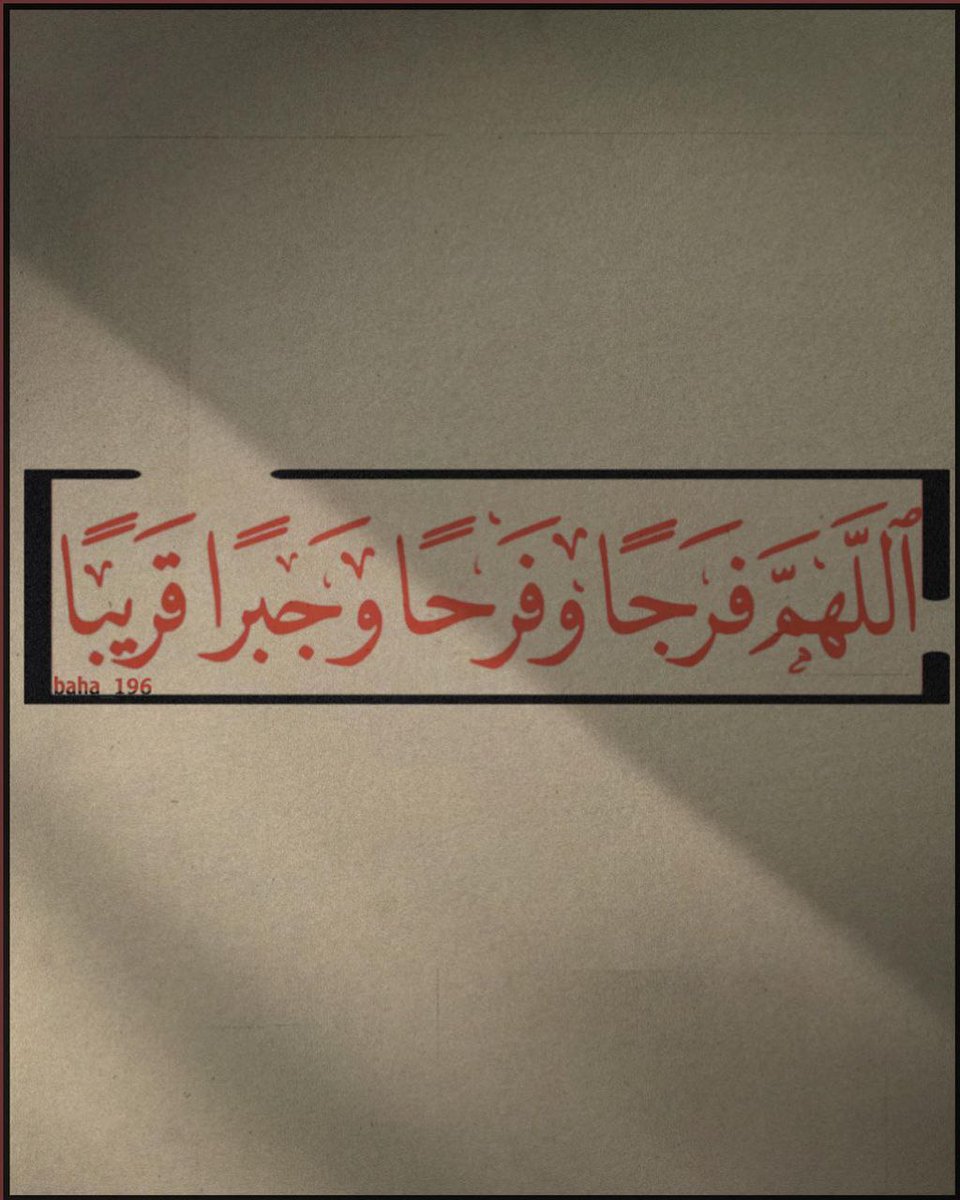 ٱللَّهُمَّ فَرَجًا وَفَرَحًا وَجَبرًا قَرِيبًا
baha 196